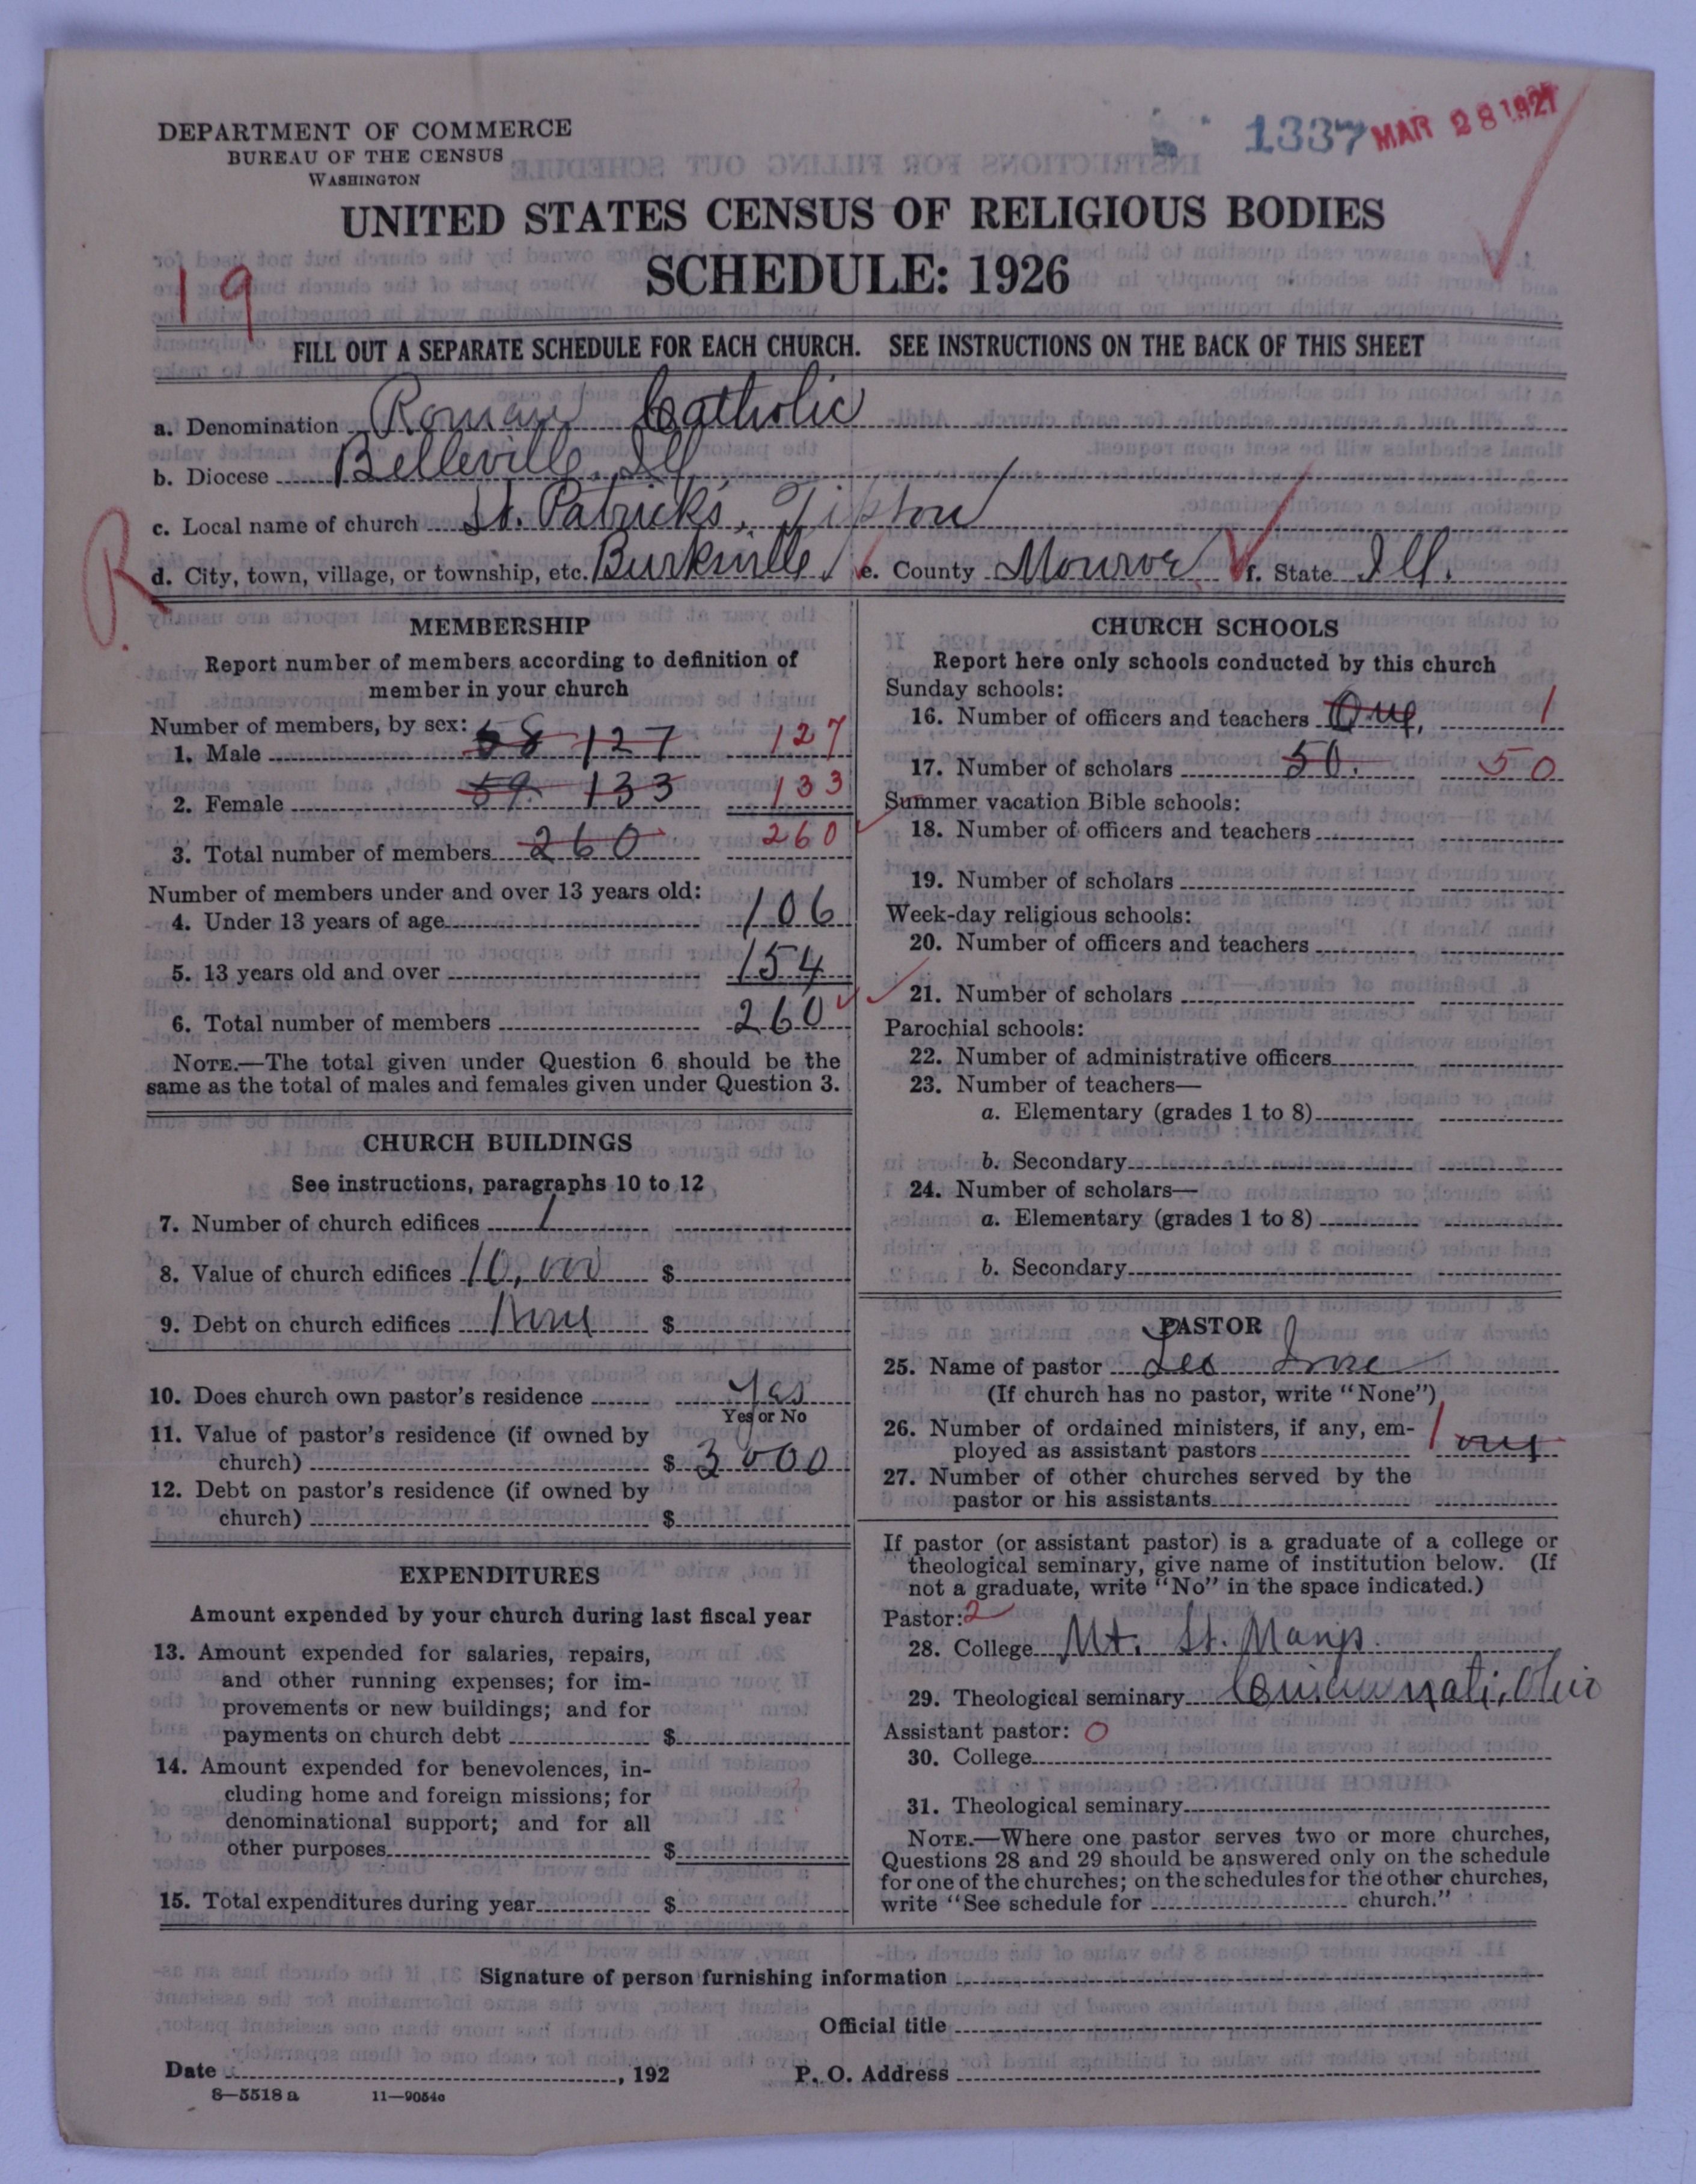 DEPARTMENT OF COMMERCE
BUREAU OF THE CENSUS
WASHINGTON
1337 MAR 28 1927
UNITED STATES CENSUS OF RELIGIOUS BODIES
SCHEDULE: 1926
19
FILL OUT A SEPARATE SCHEDULE FOR EACH CHURCH. SEE INSTRUCTIONS ON THE BACK OF THIS SHEET
a. Denomination Roman Catholic
b. Diocese Belleville, Ill.
c. Local name of church St. Patrick's, Tipton
R. d. City, town, village, or township, etc. Burksville e. County Monroe f. State Ill.
MEMBERSHIP
Report number of members according to definition of
member in your church
Number of members, by sex:
1. Male 58 127 127
2. Female 59 133 133
3. Total number of members 260 260
Number of members under and over 13 years old:
4. Under 13 years of age 106
5. 13 years old and over 154
6. Total number of members 260
NOTE.—The total given under Question 6 should be the
same as the total of males and females given under Question 3.
CHURCH BUILDINGS
See instructions, paragraphs 10 to 12
7. Number of church edifices 1
8. Value of church edifices 10,000 $
9. Debt on church edifices None $
10. Does church own pastor's residence Yes
Yes or No
11. Value of pastor's residence (if owned by
church) $ 3000
12. Debt on pastor's residence (if owned by
church) $
EXPENDITURES
Amount expended by your church during last fiscal year
13. Amount expended for salaries, repairs,
and other running expenses; for im-
provements or new buildings; and for
payments on church debt $
14. Amount expended for benevolences, in-
cluding home and foreign missions; for
denominational support; and for all
other purposes $
15. Total expenditures during year $
CHURCH SCHOOLS
Report here only schools conducted by this church
Sunday schools:
16. Number of officers and teachers One 1
17. Number of scholars 50. 50
Summer vacation Bible schools:
18. Number of officers and teachers
19. Number of scholars
Week-day religious schools:
20. Number of officers and teachers
21. Number of scholars
Parochial schools:
22. Number of administrative officers
23. Number of teachers—
a. Elementary (grades 1 to 8)
b. Secondary
24. Number of scholars—
a. Elementary (grades 1 to 8)
b. Secondary
PASTOR
25. Name of pastor Leo
(If church has no pastor, write "None")
26. Number of ordained ministers, if any, em-
ployed as assistant pastors 1 one
27. Number of other churches served by the
pastor or his assistants
If pastor (or assistant pastor) is a graduate of a college or
theological seminary, give name of institution below. (If
not a graduate, write "No" in the space indicated.)
Pastor: 2
28. College Mt. St. Marys.
29. Theological seminary Cincinnati, Ohio
Assistant pastor: 0
30. College
31. Theological seminary
NOTE.—Where one pastor serves two or more churches,
Questions 28 and 29 should be answered only on the schedule
for one of the churches; on the schedules for the other churches,
write "See schedule for church."
Signature of person furnishing information
Official title
Date , 192 P. O. Address
8—5518 a 11—9054c